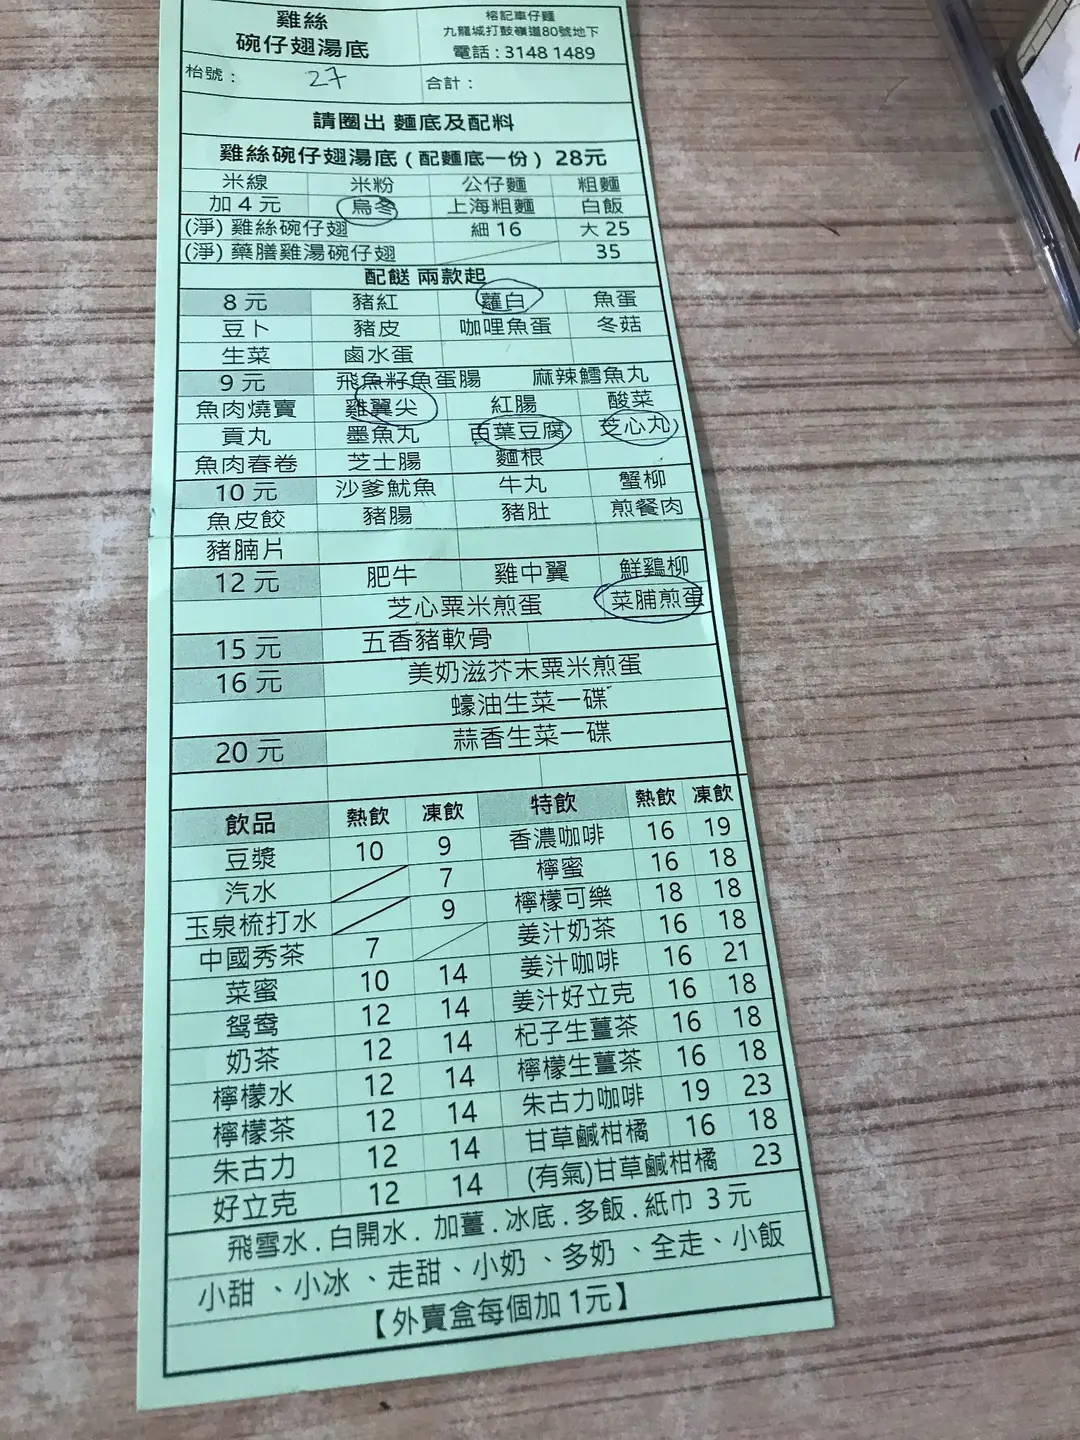 雞絲
碗仔翅湯底
榕記車仔麵
九龍城打鼓嶺道80號地下
電話 : 3148 1489
枱號 : 27 合計 :
請圈出 麵底及配料
雞絲碗仔翅湯底 ( 配麵底一份 ) 28元
米線 米粉 公仔麵 粗麵
加 4 元 烏冬 上海粗麵 白飯
(淨) 雞絲碗仔翅 細 16 大 25
(淨) 藥膳雞湯碗仔翅 35
配餸 兩款起
8 元 豬紅 蘿白 魚蛋
豆卜 豬皮 咖哩魚蛋 冬菇
生菜 鹵水蛋
9 元 飛魚籽魚蛋腸 麻辣鱈魚丸
魚肉燒賣 雞翼尖 紅腸 酸菜
貢丸 墨魚丸 百葉豆腐 芝心丸
魚肉春卷 芝士腸 麵根
10 元 沙爹魷魚 牛丸 蟹柳
魚皮餃 豬腸 豬肚 煎餐肉
豬腩片
12 元 肥牛 雞中翼 鮮鷄柳
芝心粟米煎蛋 菜脯煎蛋
15 元 五香豬軟骨
16 元 美奶滋芥末粟米煎蛋
蠔油生菜一碟
20 元 蒜香生菜一碟
飲品 熱飲 凍飲 特飲 熱飲 凍飲
豆漿 10 9 香濃咖啡 16 19
汽水 7 檸蜜 16 18
玉泉梳打水 9 檸檬可樂 18 18
中國秀茶 7 姜汁奶茶 16 18
菜蜜 10 14 姜汁咖啡 16 21
鴛鴦 12 14 姜汁好立克 16 18
奶茶 12 14 杞子生薑茶 16 18
檸檬水 12 14 檸檬生薑茶 16 18
檸檬茶 12 14 朱古力咖啡 19 23
朱古力 12 14 甘草鹹柑橘 16 18
好立克 12 14 (有氣)甘草鹹柑橘 23
飛雪水 . 白開水 . 加薑 . 冰底 . 多飯 . 紙巾 3 元
小甜 、小冰 、走甜、小奶 、多奶 、全走、小飯
【外賣盒每個加 1元】